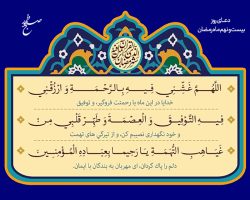 دعـای روز
بیست و نهم ماه رمضان
اَللّٰهُمَّ غَشِّنی فیـهِ بِالرَّحْمَـةِ وَ ارْزُقْنی
خدایا در این ماه با رحمتت فروگیر، و توفیق
فیـهِ التَّوْفیـقَ وَ الْعِصْمَـةَ وَ طَهِّـرْ قَلْبـی مِنْ
و خود نگهداری نصیبم کن، و از تیرگی های تهمت
غَیاهِـبِ التُّهَمَةِ یـا رَحیمـا بِعِبـادِهِ الْمُؤْمِنیـنَ
دلم را پاک گردان، ای مهربان به بندگان با ایمان.